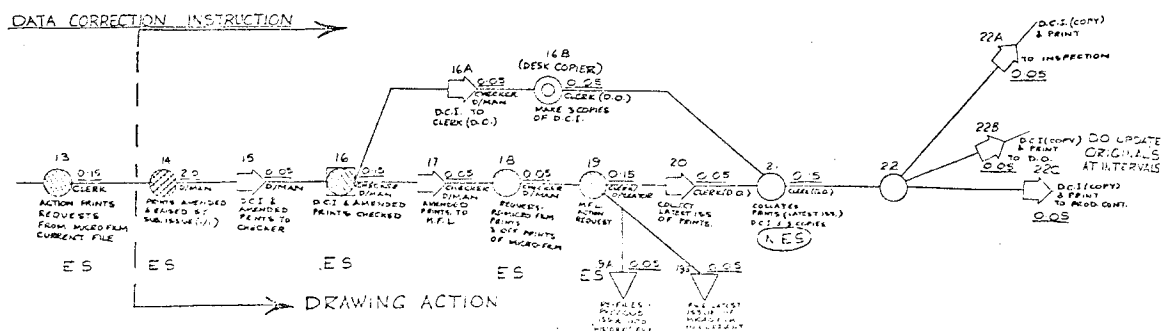 DATA CORRECTION INSTRUCTION
13
0.15
CLERK
ACTION PRINTS
REQUESTS
FROM MICROFILM
CURRENT FILE
ES
14
2.0
D/MAN
PRINTS AMENDED
ES
15
0.05
D/MAN
D.C.I &
AMENDED
PRINTS TO
CHECKER
16
0.15
CHECKER
D/MAN
D.C.I & AMENDED
PRINTS CHECKED
ES
16A
0.05
CHECKER
D/MAN
D.C.I. TO
CLERK (D.C.)
16B
(DESK COPIER)
0.05
CLERK (D.O.)
MAKE 3 COPIES
OF D.C.I.
17
0.05
CHECKER
D/MAN
AMENDED
PRINTS TO
M.F.L.
18
0.05
CHECKER
D/MAN
REQUESTS
MICROFILM
PRINTS
3 OFF PRINTS
OF MICROFILM
ES
19
0.15
CLERK/
OPERATOR
M.F.L.
ACTION
REQUEST
ES
9A
0.05
0.05
20
0.05
CLERK (D.O.)
COLLECT
LATEST ISS
OF PRINTS.
2
0.15
CLERK (D.O.)
COLLATES
PRINTS (LATEST ISS.)
D.C.I & 3 COPIES
NES
22
22A
D.C.I. (COPY)
& PRINT
TO INSPECTION
0.05
22B
D.C.I (COPY)
& PRINT
TO D.O.
0.05
DO UPDATE
ORIGINALS
AT INTERVALS
22C
D.C.I (COPY)
& PRINT
TO PROD CONT.
0.05
DRAWING ACTION